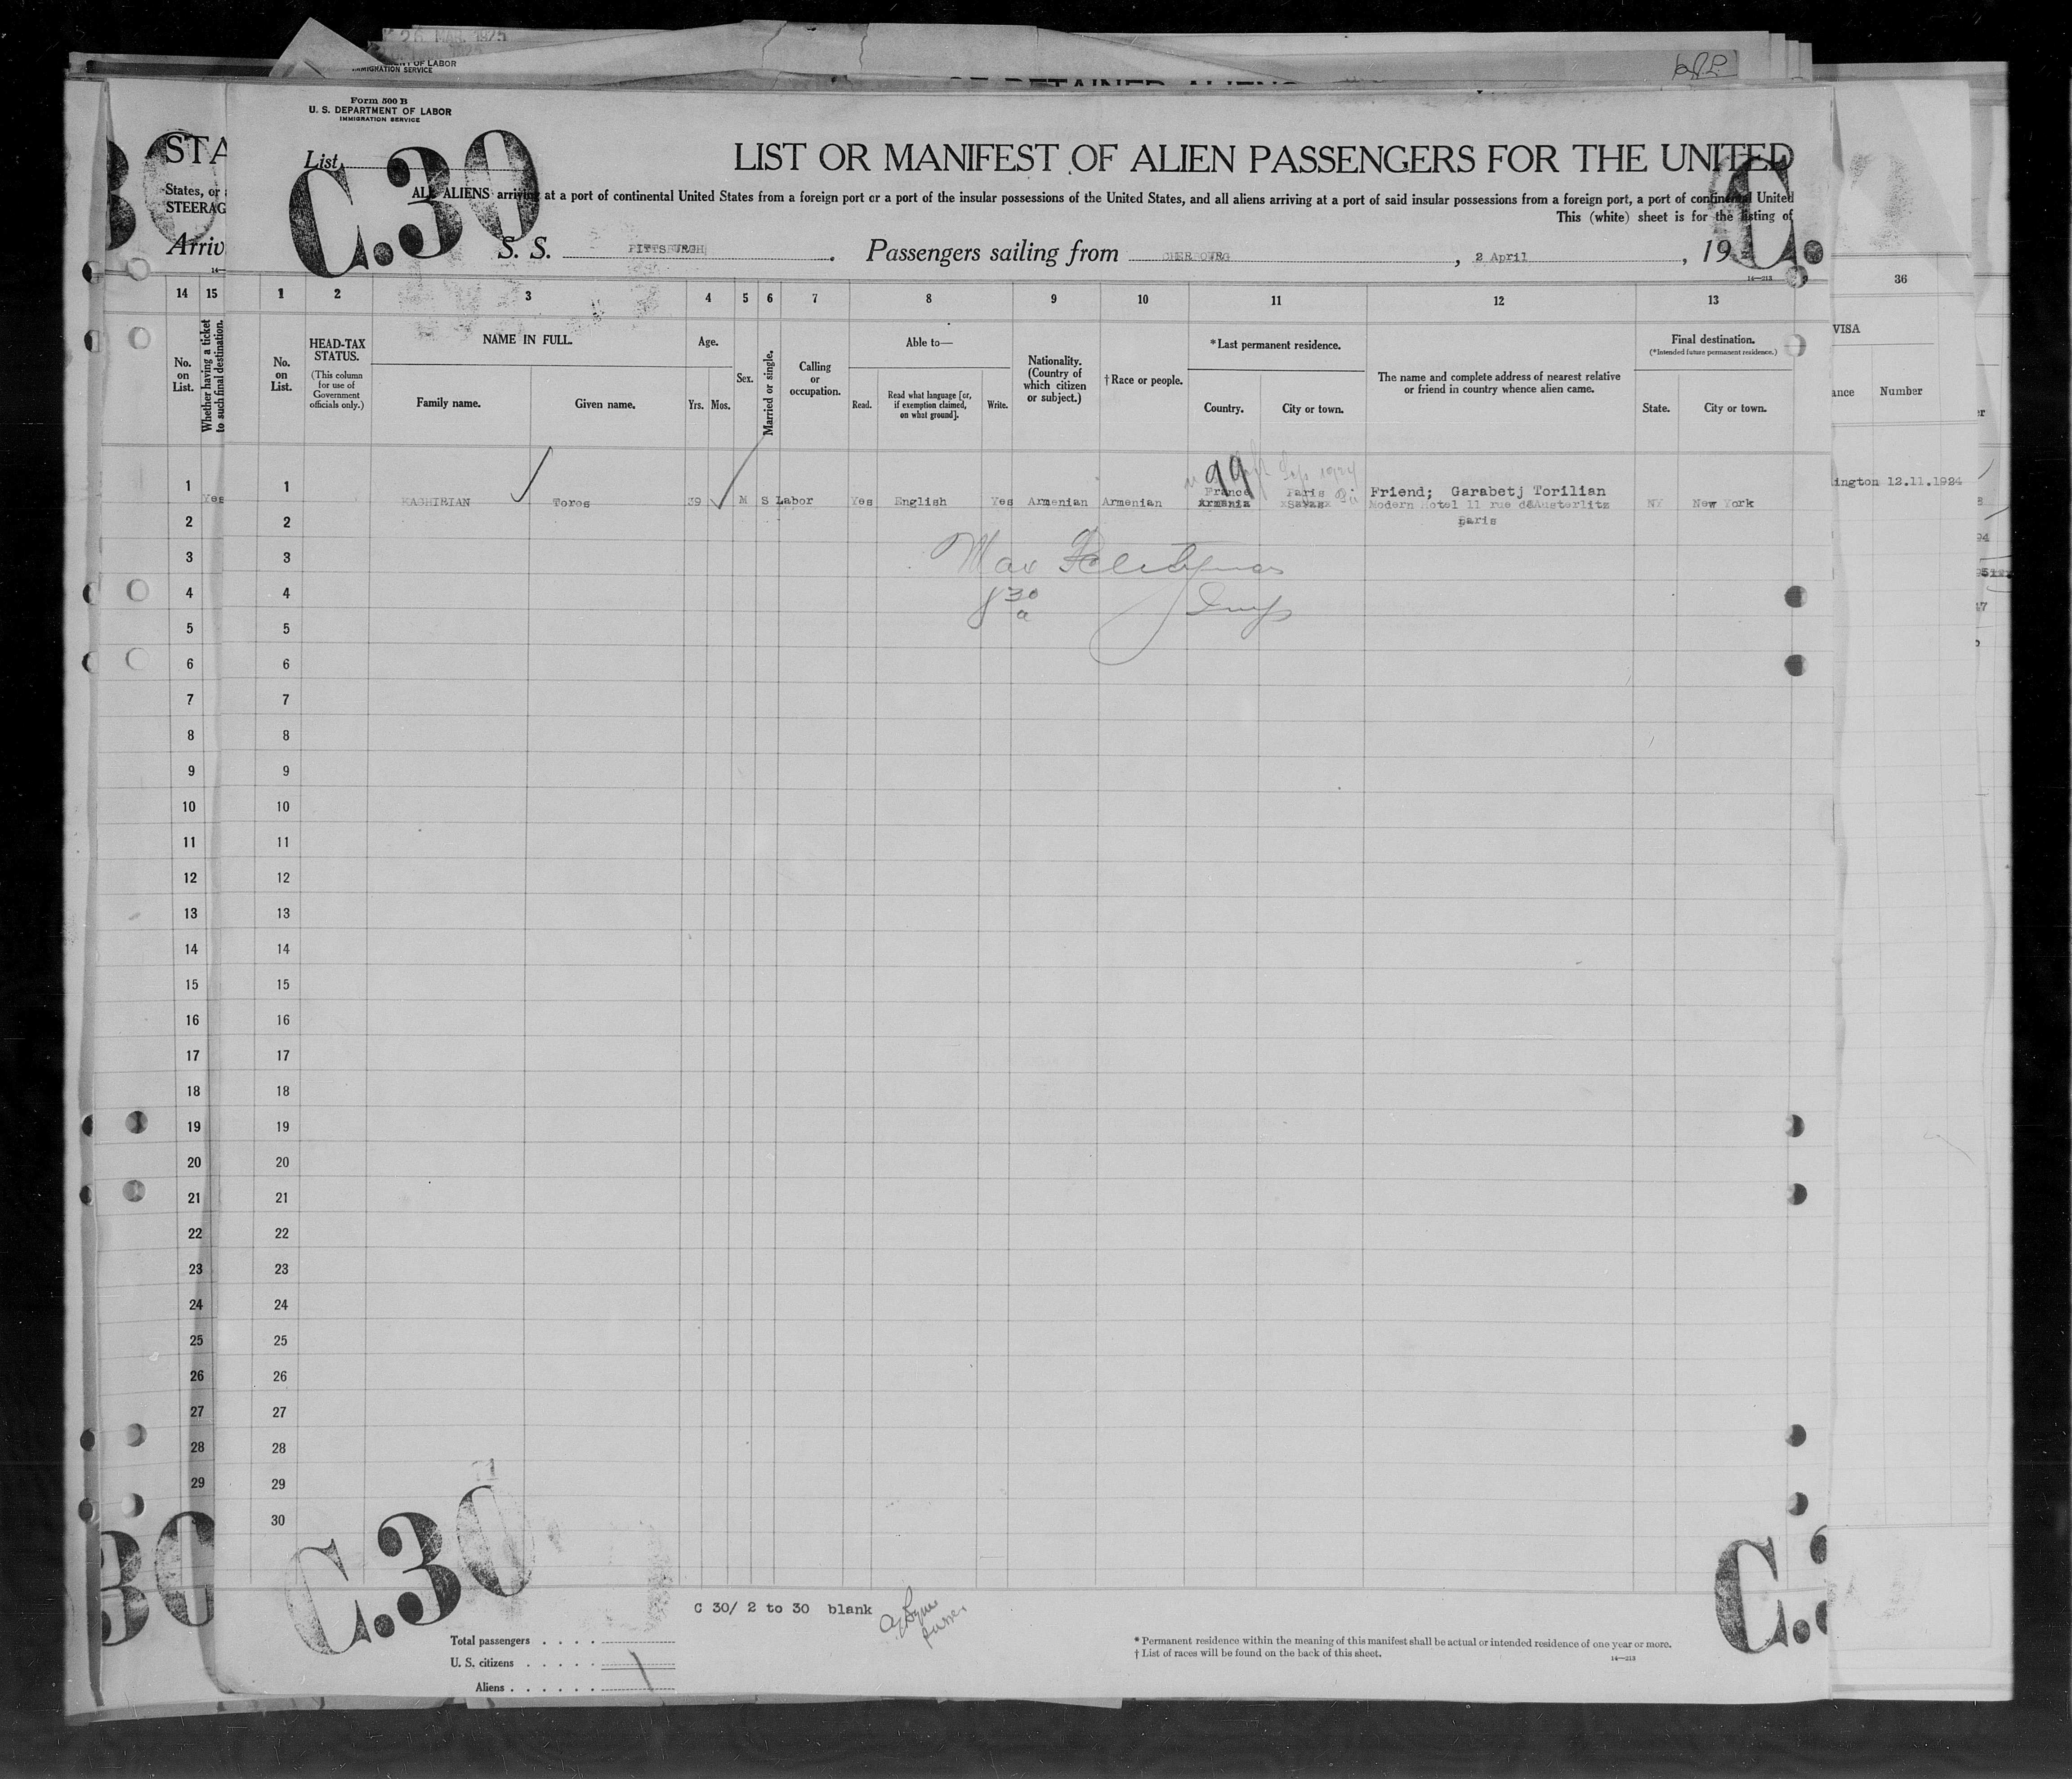 26 MAR. 1925
OF LABOR
IMMIGRATION SERVICE
Form 500 B
U. S. DEPARTMENT OF LABOR
IMMIGRATION SERVICE
List
C.30
LIST OR MANIFEST OF ALIEN PASSENGERS FOR THE UNITED
ALL ALIENS arriving at a port of continental United States from a foreign port or a port of the insular possessions of the United States, and all aliens arriving at a port of said insular possessions from a foreign port, a port of continental United
This (white) sheet is for the listing of
S. S. PITTSBURGH. Passengers sailing from CHERBOURG, 2 April, 19
14—213
STA
States, or
STEERAG
Arriv
14 15 1 2 3 4 5 6 7 8 9 10 11 12 13 36
No. on List.
Whether having a ticket to such final destination.
No. on List.
HEAD-TAX STATUS.
(This column for use of Government officials only.)
NAME IN FULL.
Family name.
Given name.
Age.
Yrs. Mos.
Sex.
Married or single.
Calling or occupation.
Able to—
Read.
Read what language [or, if exemption claimed, on what ground].
Write.
Nationality. (Country of which citizen or subject.)
† Race or people.
*Last permanent residence.
Country.
City or town.
The name and complete address of nearest relative or friend in country whence alien came.
Final destination.
(*Intended future permanent residence.)
State.
City or town.
VISA
Number
99
France Paris Friend; Garabetj Torilian
1 Yes 1 KACHIBIAN Toros 39 M S Labor Yes English Yes Armenian Armenian Armenia Modern Hotel 11 rue d'Austerlitz NY New York
Paris
ington 12.11.1924
2 2
3 3
4 4
5 5
6 6
7 7
8 8
9 9
10 10
11 11
12 12
13 13
14 14
15 15
16 16
17 17
18 18
19 19
20 20
21 21
22 22
23 23
24 24
25 25
26 26
27 27
28 28
29 29
30
Max
8 30 a Insp
C.30
C 30/ 2 to 30 blank
Total passengers
U. S. citizens
Aliens
* Permanent residence within the meaning of this manifest shall be actual or intended residence of one year or more.
† List of races will be found on the back of this sheet.
14—213